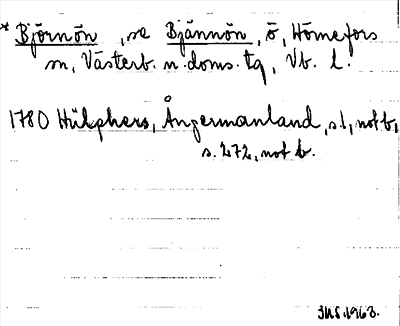 * Björnön, se Bjännön, ö, Hörnefors
sn, Västerb. n. doms. tg, Vb. l.
1780 Hülphers, Ångermanland, s. 1, not b,
s. 272, not b.
JUS. 1963.